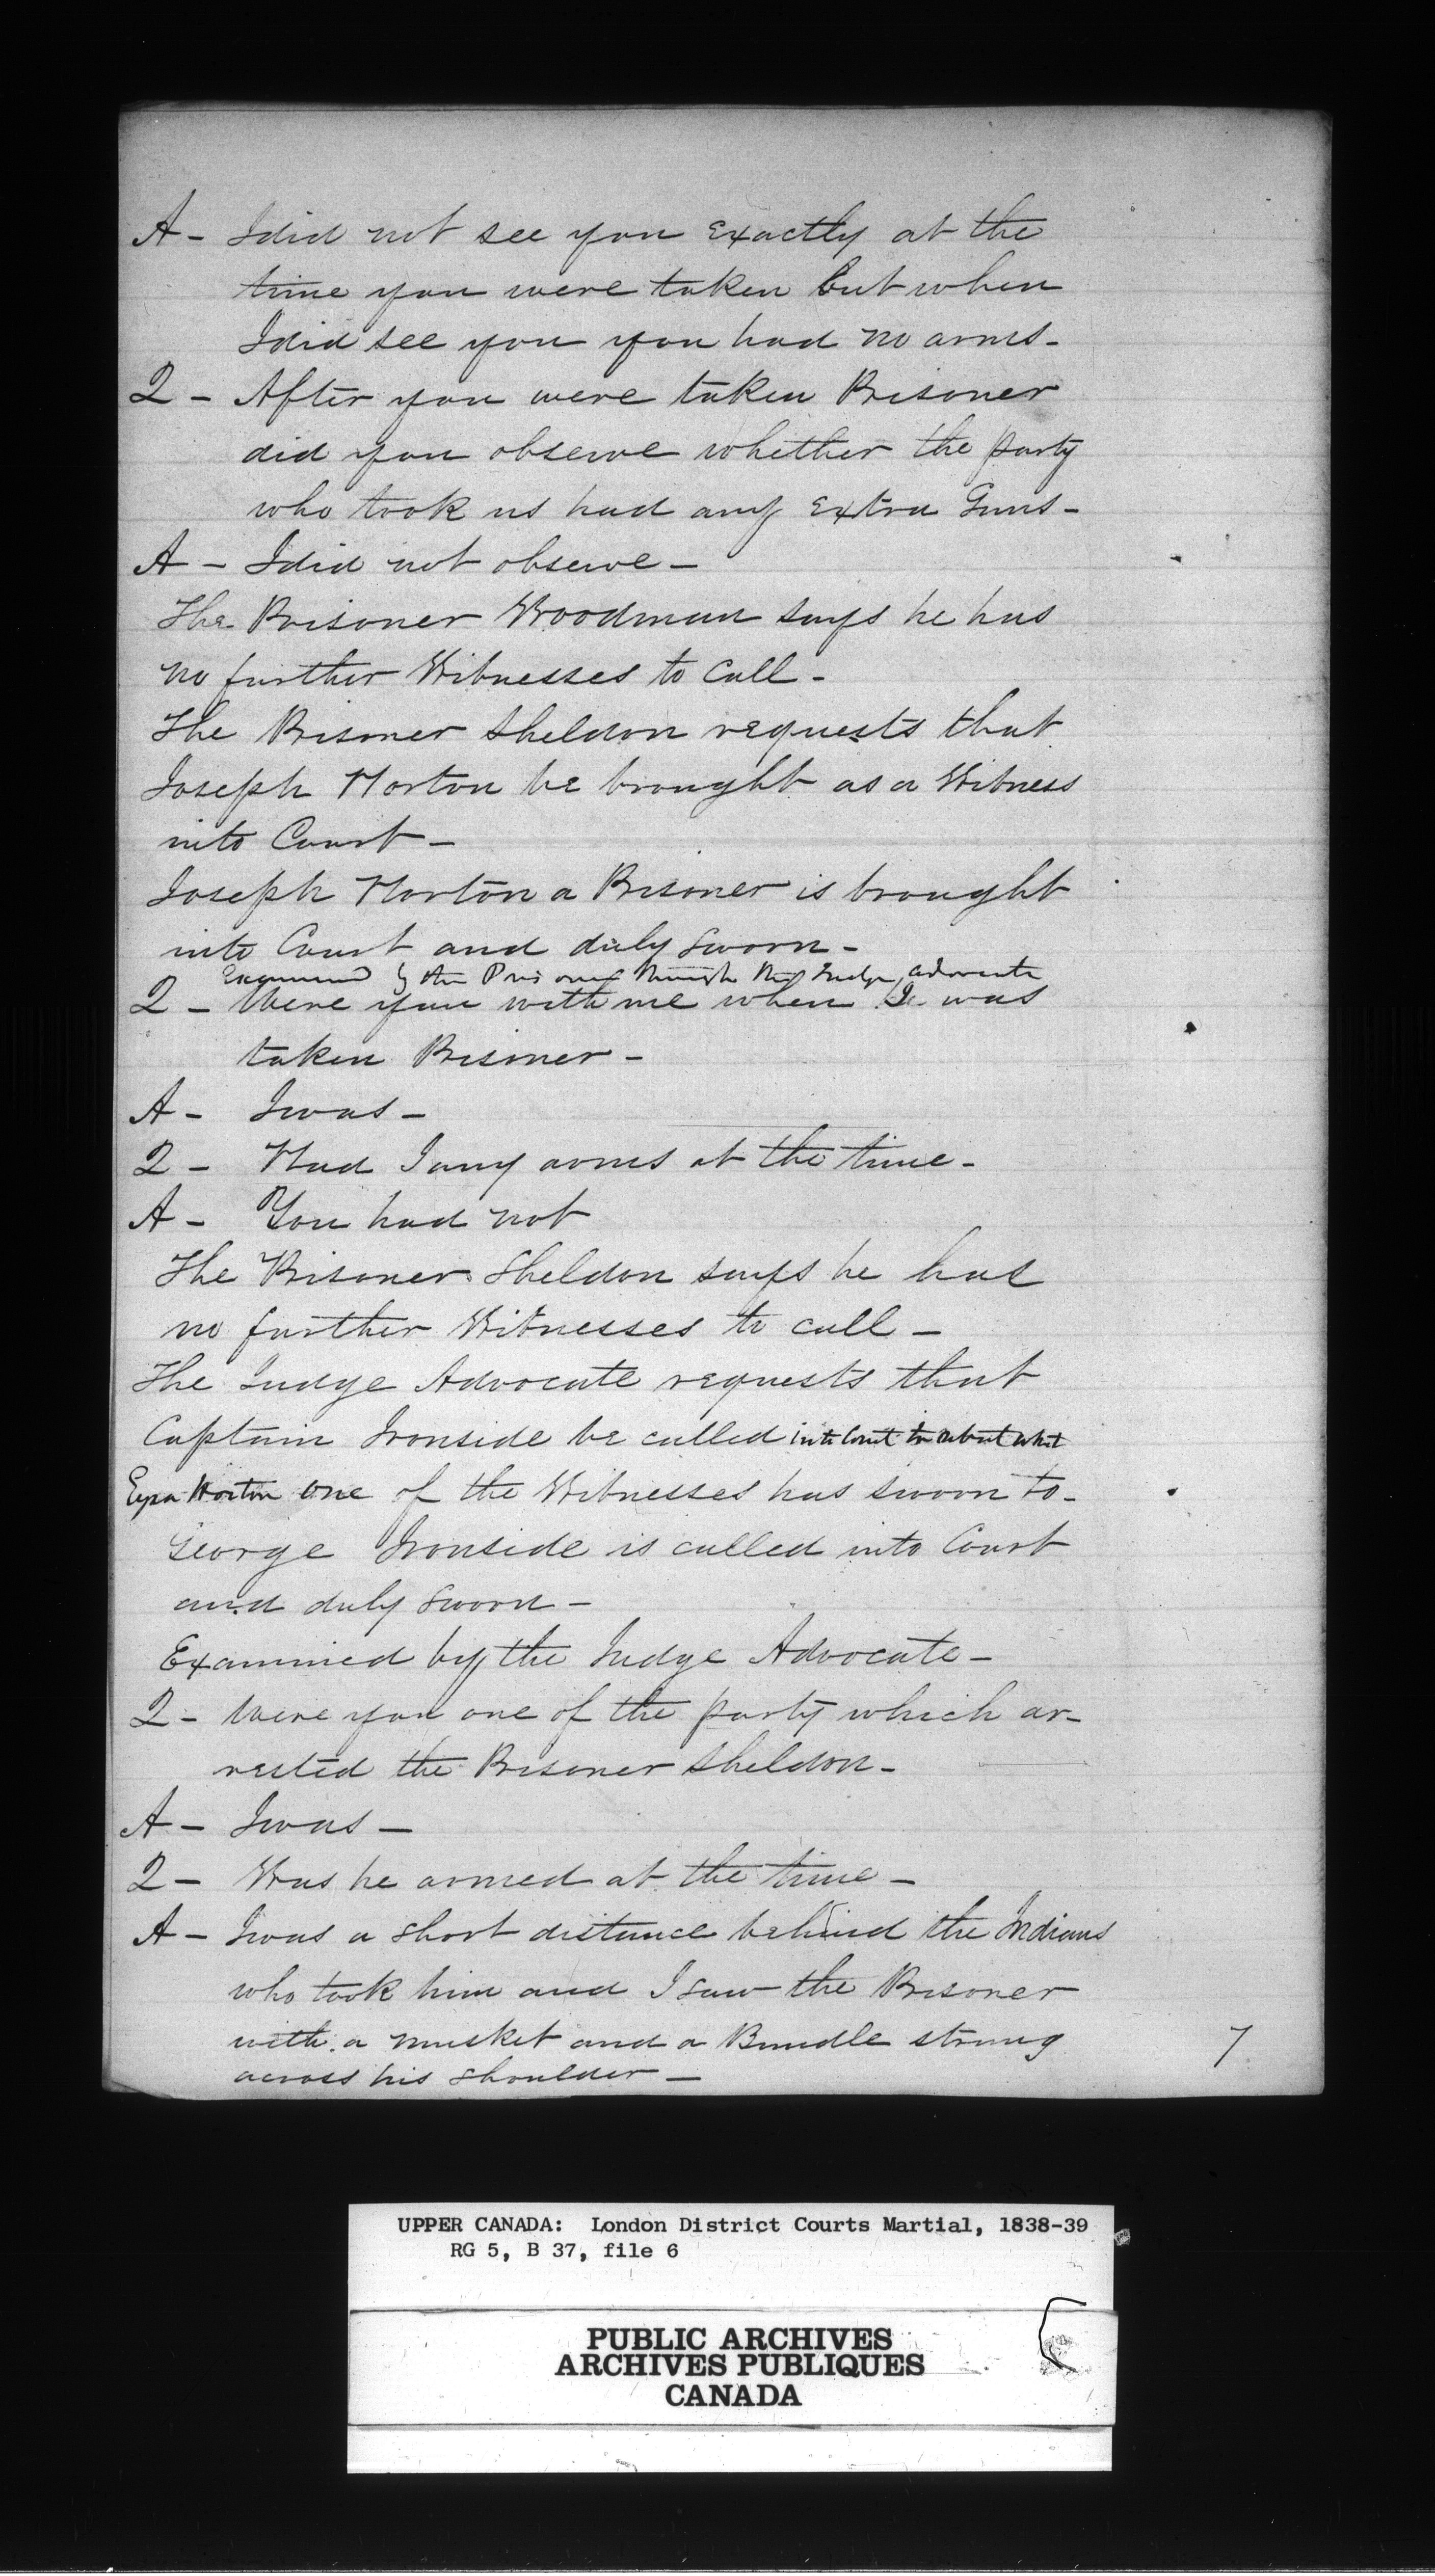 A - I did not see you exactly at the
time you were taken but when
I did see you you had no arms -
Q - After you were taken Prisoner
did you observe whether the party
who took us had any extra Guns -
A - I did not observe -
The Prisoner Woodman says he has
no further Witnesses to Call -
The Prisoner Sheldon requests that
Joseph Horton be brought as a Witness
into Court -
Joseph Horton a Prisoner is brought
into Court and duly sworn -
Examined by the Prisoner through the Judge Advocate
Q - Were you with me when I was
taken Prisoner -
A - I was -
Q - Had I any arms at the time -
A - You had not
The Prisoner Sheldon says he has
no further Witnesses to call -
The Judge Advocate requests that
Captain Ironside be called into Court to rebut what
Ezra Horton one of the Witnesses has sworn to -
George Ironside is called into Court
and duly sworn -
Examined by the Judge Advocate -
Q - Were you one of the party which ar-
rested the Prisoner Sheldon -
A - I was -
Q - Was he armed at the time -
A - I was a short distance behind the Indians
who took him and I saw the Prisoner
with a musket and a Bundle strung
across his shoulder -
7
UPPER CANADA: London District Courts Martial, 1838-39
RG 5, B 37, file 6
PUBLIC ARCHIVES
ARCHIVES PUBLIQUES
CANADA